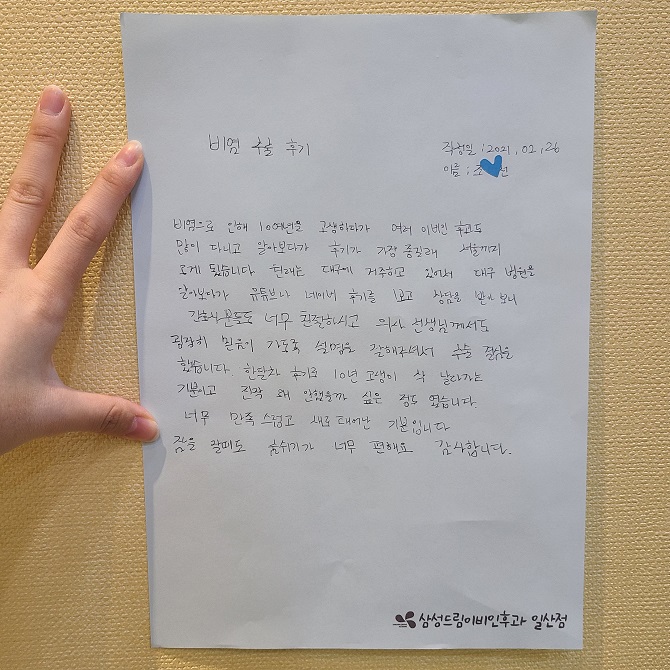 비염 수술 후기
작성일 : 2021. 02. 26
이름 : 조 연
비염으로 인해 10여년을 고생하다가 여러 이비인후과도
많이 다니고 알아보다가 후기가 가장 좋길래 서울까지
오게 됐습니다 현재는 대구에 거주하고 있어서 대구 병원을
알아보다가 유튜브나 네이버 후기를 보고 상담을 받아 보니
간호사분들도 너무 친절하시고 의사 선생님께서도
굉장히 믿음이 가도록 설명을 잘해주셔서 수술 결심을
했습니다. 한달차 후기로 10년 고생이 싹 날라가는
기분이고 진작 왜 안했을까 싶은 정도 였습니다
너무 만족스럽고 새로 태어난 기분입니다
잠을 잘때도 숨쉬기가 너무 편해요 감사합니다.
삼성드림이비인후과 일산점